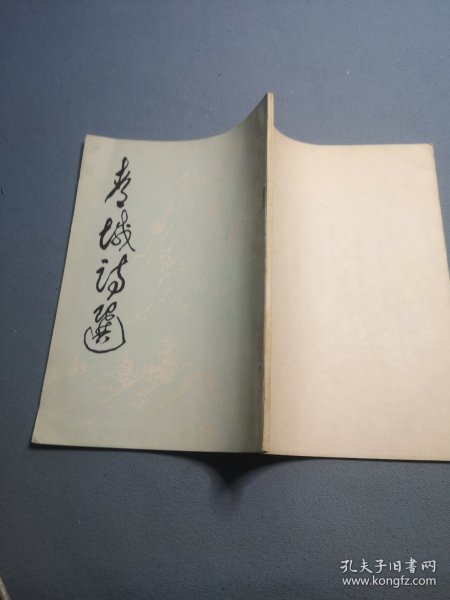 青城诗选
孔夫子旧书网
www.kongfz.com